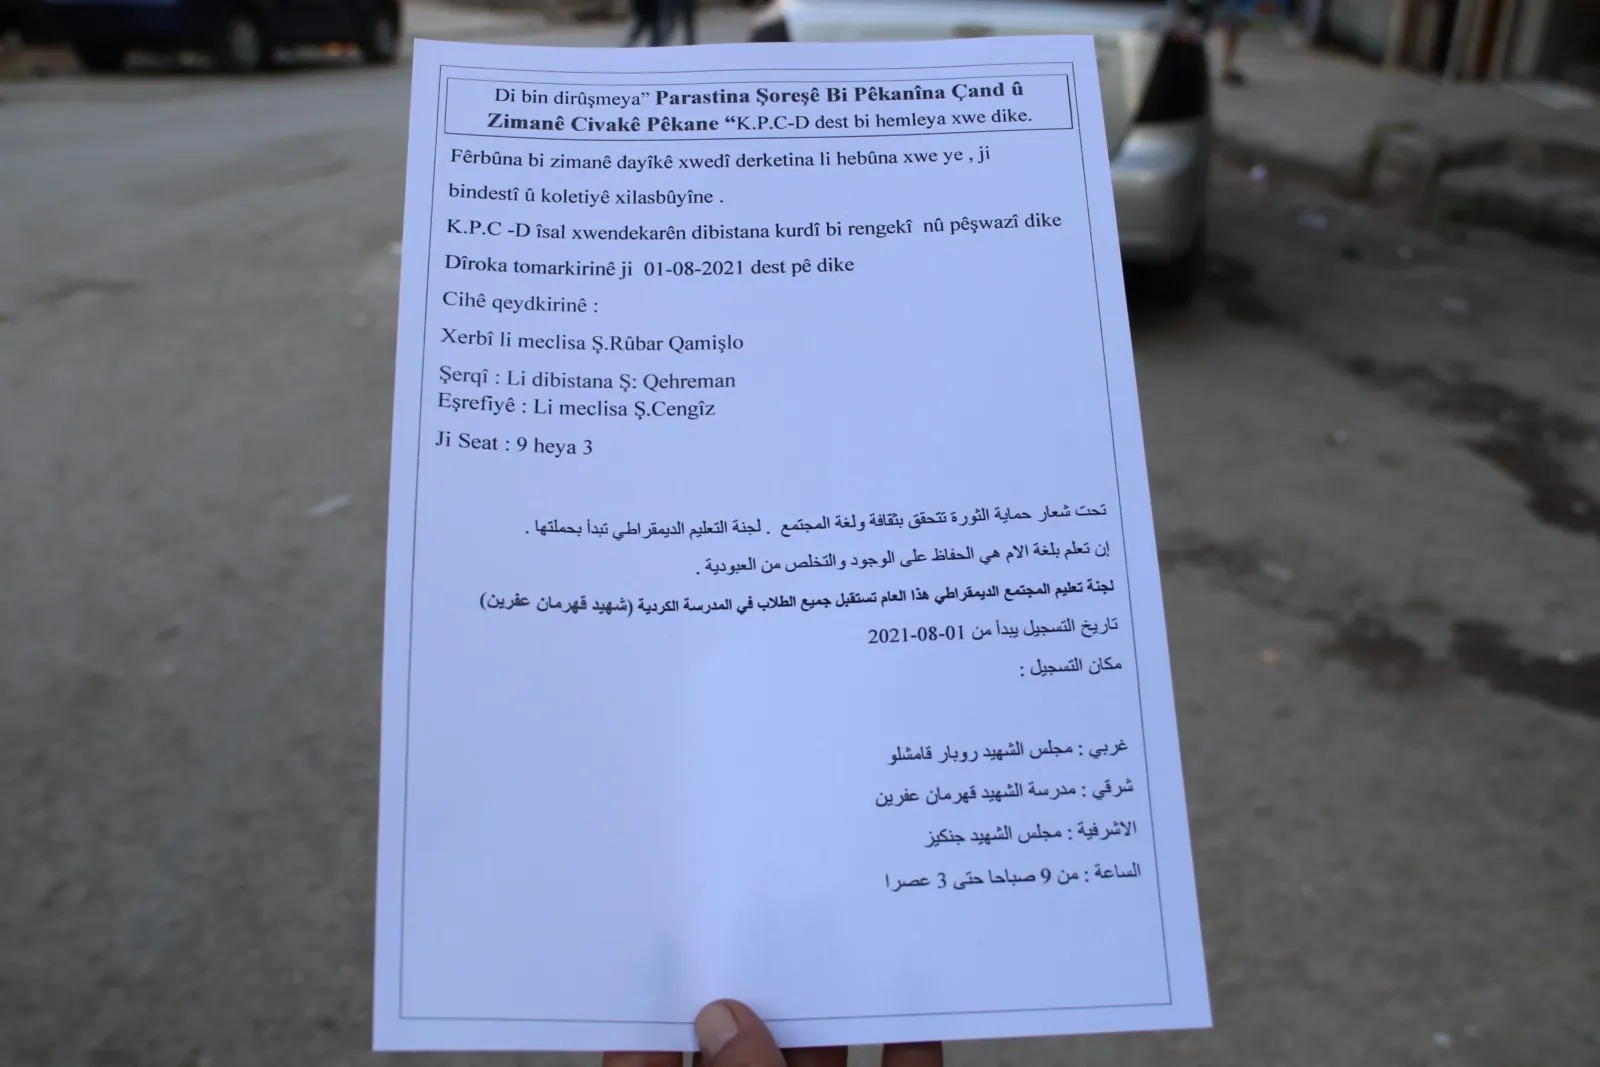 Di bin dirûşmeya” Parastina Şoreşê Bi Pêkanîna Çand û
Zimanê Civakê Pêkane “K.P.C-D dest bi hemleya xwe dike.
Fêrbûna bi zimanê dayîkê xwedî derketina li hebûna xwe ye , ji
bindestî û koletiyê xilasbûyîne .
K.P.C -D îsal xwendekarên dibistana kurdî bi rengekî nû pêşwazî dike
Dîroka tomarkirinê ji 01-08-2021 dest pê dike
Cihê qeydkirinê :
Xerbî li meclisa Ş.Rûbar Qamişlo
Şerqî : Li dibistana Ş: Qehreman
Eşrefiyê : Li meclisa Ş.Cengîz
Ji Seat : 9 heya 3
تحت شعار حماية الثورة تتحقق بثقافة ولغة المجتمع . لجنة التعليم الديمقراطي تبدأ بحملتها .
إن تعلم بلغة الام هي الحفاظ على الوجود والتخلص من العبودية .
لجنة تعليم المجتمع الديمقراطي هذا العام تستقبل جميع الطلاب في المدرسة الكردية (شهيد قهرمان عفرين)
تاريخ التسجيل يبدأ من 01-08-2021
مكان التسجيل :
غربي : مجلس الشهيد روبار قامشلو
شرقي : مدرسة الشهيد قهرمان عفرين
الاشرفية : مجلس الشهيد جنكيز
الساعة : من 9 صباحا حتى 3 عصرا